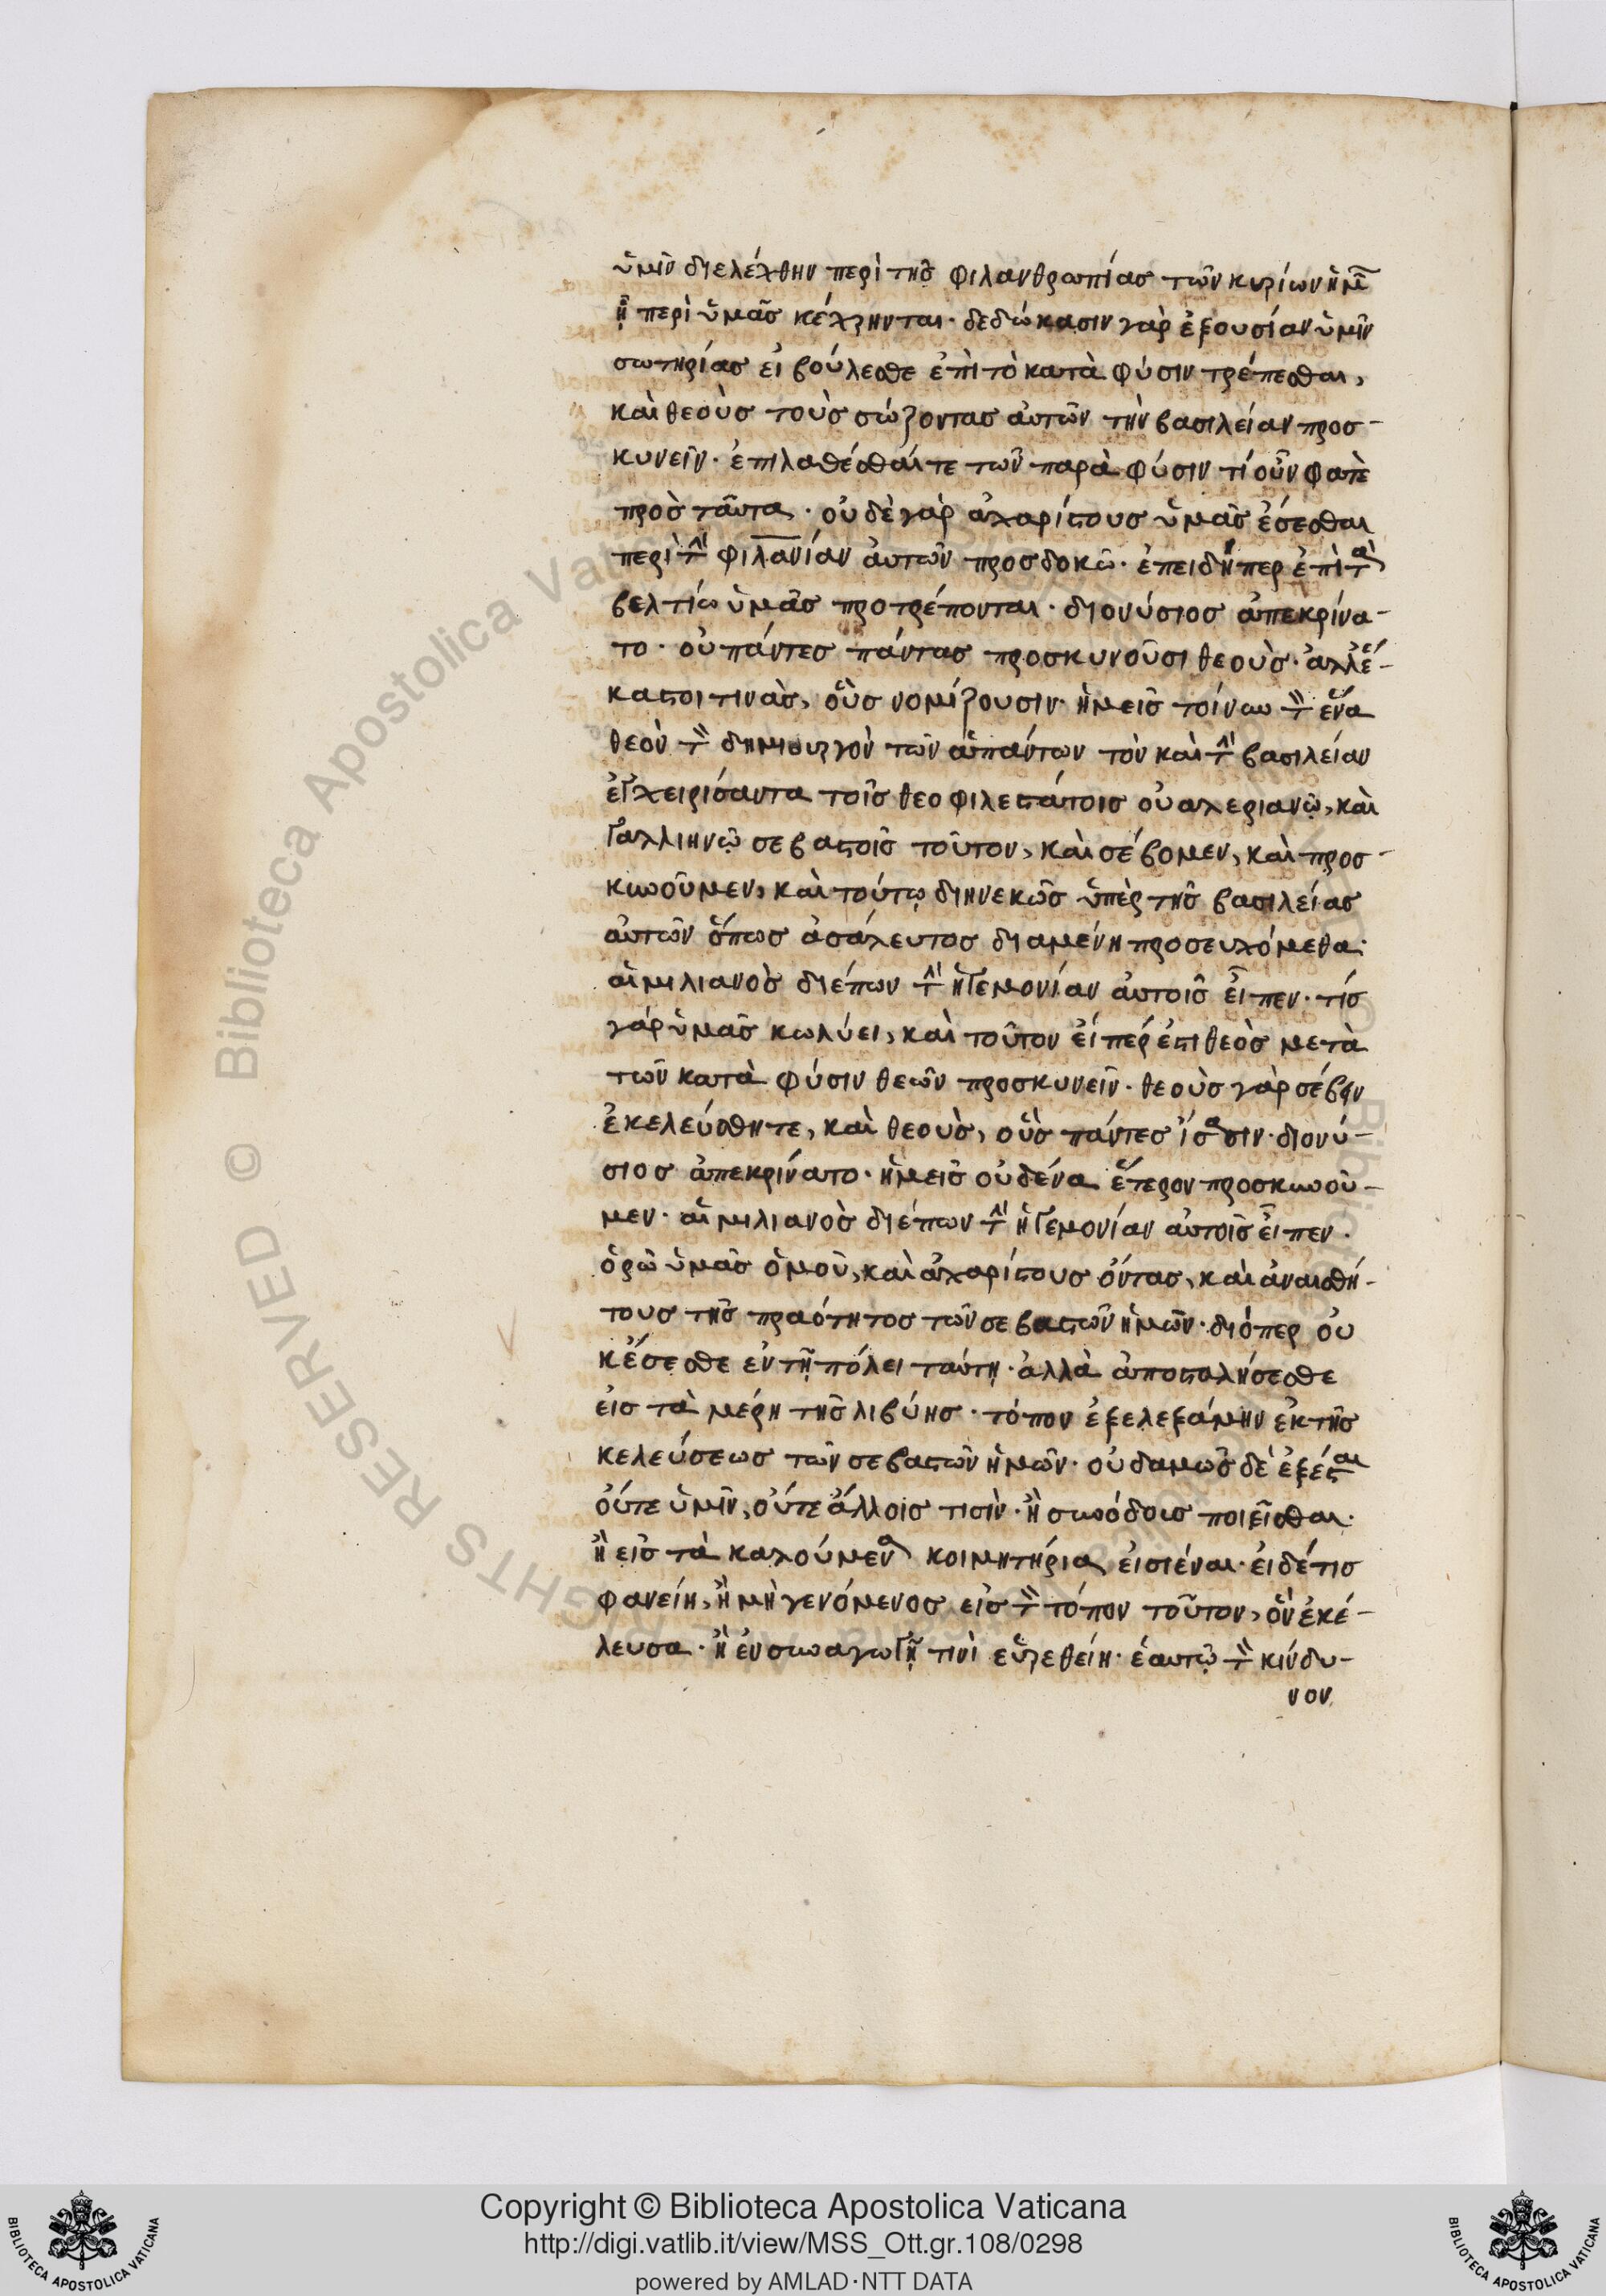 ὑμῖν διελέχθην περὶ τῆς φιλανθρωπίας τῶν κυρίων ἡμῶ
ᾗ περὶ ὑμᾶς κέχρηνται· δεδώκασιν γὰρ ἐξουσίαν ὑμῖν
σωτηρίας εἰ βούλεσθε ἐπὶ τὸ κατὰ φύσιν τρέπεσθαι,
καὶ θεοὺς τοὺς σώζοντας αὐτῶν τὴν βασιλείαν προσ-
κυνεῖν· ἐπιλαθέσθαί τε τῶν παρὰ φύσιν τί οὖν φατὲ
πρὸς ταῦτα· οὐδὲ γὰρ ἀχαρίστους ὑμᾶς ἔσεσθαι
περὶ τὴν φιλανίαν αὐτῶν προσδοκῶ· ἐπειδήπερ ἐπὶ τὰ
βελτίω ὑμᾶς προτρέπονται· διονύσιος ἀπεκρίνα-
το· οὐ πάντες πάντας προσκυνοῦσι θεοὺς· ἀλλ' ἕ-
καστοι τινὰς, οὓς νομίζουσιν· ἡμεῖς τοίνυν τὸν ἕνα
θεὸν τὸν δημιουργὸν τῶν ἁπάντων τὸν καὶ τὴν βασιλείαν
ἐγχειρίσαντα τοῖς θεοφιλεστάτοις οὐαλεριανῷ, καὶ
Γαλλιηνῷ σεβαστοῖς τοῦτον, καὶ σέβομεν, καὶ προσ-
κυνοῦμεν, καὶ τούτῳ διηνεκῶς ὑπὲρ τῆς βασιλείας
αὐτῶν ὅπως ἀσάλευτος διαμένη προσευχόμεθα·
αἰμιλιανὸς διέπων τὴν ἡγεμονίαν αὐτοῖς εἶπεν· τίς
γάρ ὑμᾶς κωλύει, καὶ τοῦτον εἴπέρ ἐστι θεὸς μετὰ
τῶν κατὰ φύσιν θεῶν προσκυνεῖν· θεοὺς γὰρ σέβειν
ἐκελεύσθητε, καὶ θεοὺς, οὓς πάντες ἴσασιν· διονύ-
σιος ἀπεκρίνατο· ἡμεῖς οὐδένα ἕτερον προσκυνοῦ-
μεν· αἰμιλιανὸς διέπων τὴν ἡγεμονίαν αὐτοῖς εἶπεν·
ὁρῶ ὑμᾶς ὁμοῦ, καὶ ἀχαρίστους ὄντας, καὶ ἀναισθή-
τους τῆς πραότητος τῶν σεβαστῶν ἡμῶν· διόπερ οὐ
κἔσεσθε ἐν τῇ πόλει ταύτῃ· ἀλλὰ ἀποσταλήσεσθε
εἰς τὰ μέρη τῆς λιβύης· τόπον ἐξελεξάμην ἐκ τῆς
κελεύσεως τῶν σεβαστῶν ἡμῶν· οὐδαμῶς δὲ ἐξέσται
οὔτε ὑμῖν, οὔτε ἄλλοις τισὶν· ἢ συνόδους ποιεῖσθαι·
ἢ εἰς τὰ καλούμενα κοιμητήρια εἰσιέναι· εἰ δέ τις
φανείη, ἢ μὴ γενόμενος εἰς τὸν τόπον τοῦτον, ὃν ἐκέ-
λευσα· ἢ ἐν συναγωγῇ τινὶ εὑρεθείη· ἑαυτῷ τὸν κίνδυ-
νον
Copyright © Biblioteca Apostolica Vaticana
http://digi.vatlib.it/view/MSS_Ott.gr.108/0298
powered by AMLAD·NTT DATA